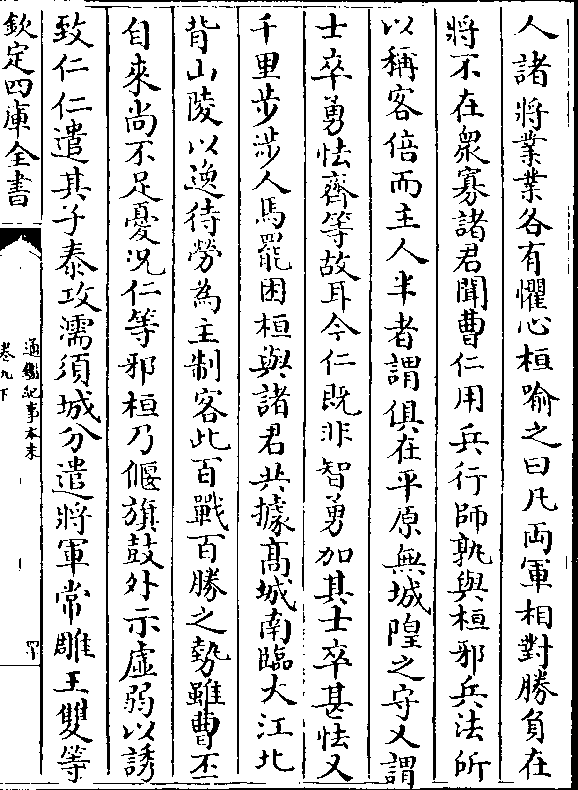 人諸將業業各有懼心桓喻之曰凡兩軍相對勝負在
將不在衆寡諸君聞曹仁用兵行師孰與桓邪兵法所
以稱客倍而主人半者謂俱在平原無城隍之守又謂
士卒勇怯齊等故耳今仁既非智勇加其士卒甚怯又
千里步涉人馬罷困桓與諸君共據髙城南臨大江北
背山陵以逸待勞為主制客此百戰百勝之勢雖曹丕
自來尚不足憂况仁等邪桓乃偃旗鼓外示虚弱以誘
致仁仁遣其子泰攻濡須城分遣將軍常雕王雙等
欽定四庫全書
通鑑紀事本末
卷九下